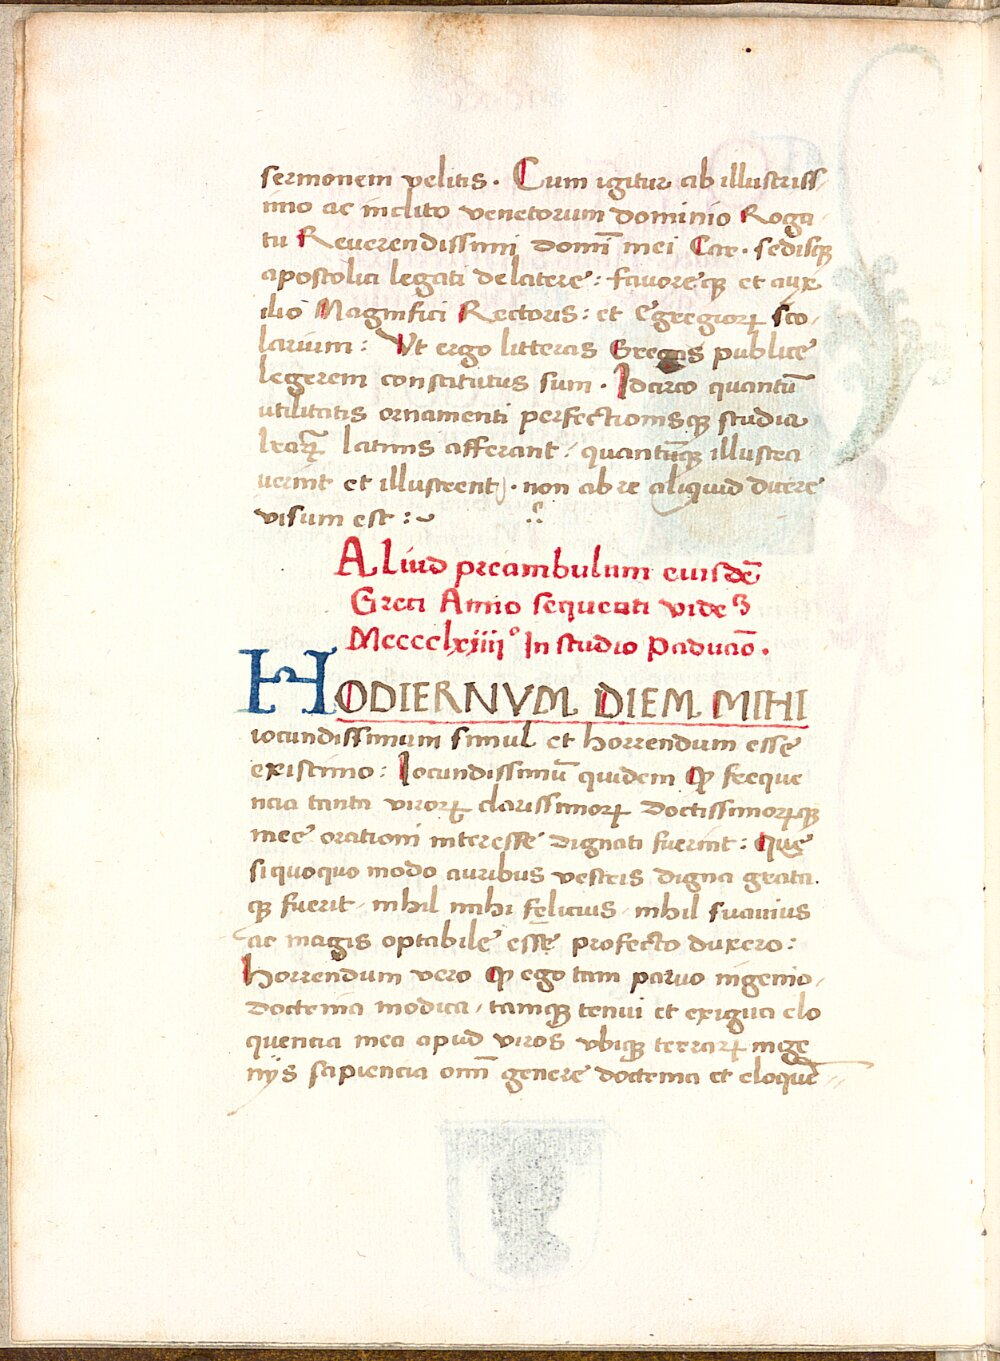 sermonem velitis. Cum igitur ab illustriss
imo ac inclito venetorum dominio Roga
tu Reverendissimi domī mei Car. sedisqꝫ
apostolica legati de latere: favoreqꝫ et aux
ilio Magnifici Rectoris: et Egregioꝝ sco-
larium: Ut ergo litteras Grecas publice
legerem constitutus sum. Idcirco quantū
utilitatis ornamenti perfectionisqꝫ studia
lr̄aꝝ latinis afferant, quantūqꝫ illustra
verint et illustrent. non ab re aliquid dicere
visum est:~
ALiud preambulum eiusdē
Greci Anno sequenti vide
Mcccclxiiiiº In studio Paduāo.
HODIERNVM DIEM MIHI
iocundissimum simul et horrendum esse
existimo: Iocundissimū quidem qꝫ freque
ncia tanta viroꝝ clarissimoꝝ doctissimoꝝqꝫ
mee orationi interesse dignati fuerint: Que
si quoquo modo auribus vestris digna grata
qꝫ fuerit, nihil mihi felicius, nihil suavius
ac magis optabile esse profecto duxero:
Horrendum vero qꝫ ego tam parvo ingenio,
doctrina modica, tamqꝫ tenui et exigua elo
quencia mea apud viros ubiqꝫ terraꝝ inge
nijs sapiencia omī genere doctrina et eloquē